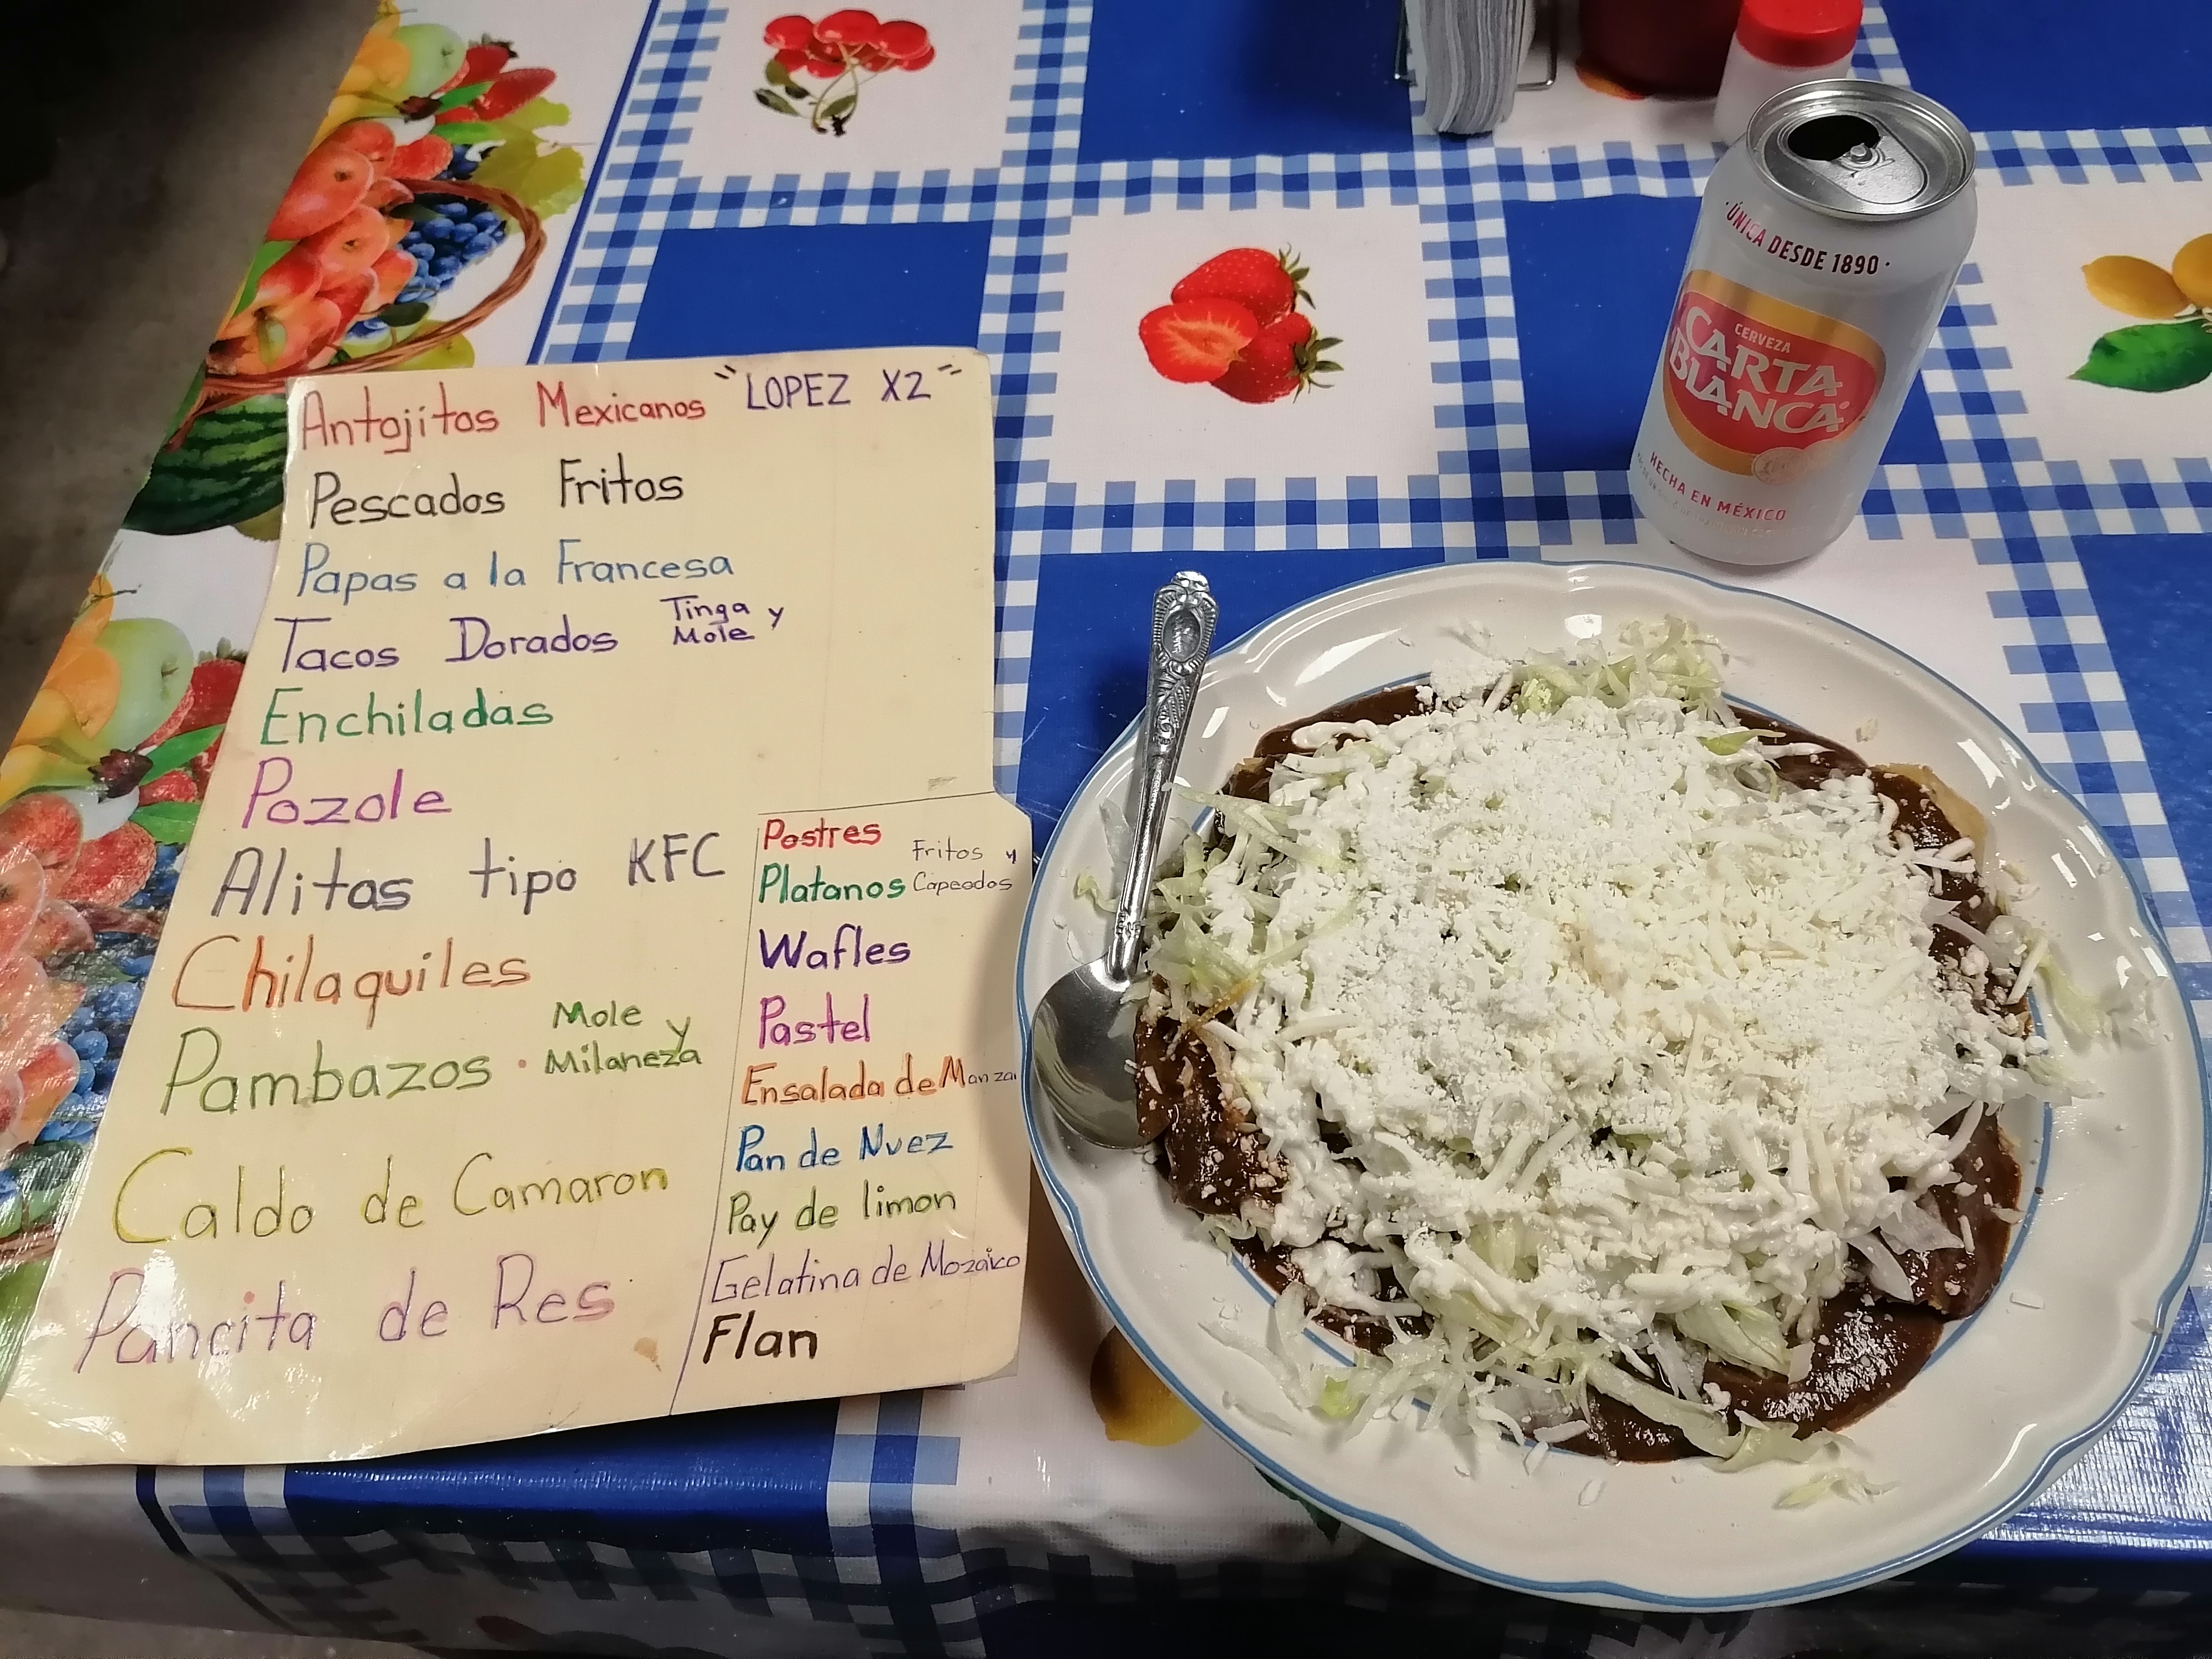 Antojitos Mexicanos "LOPEZ X2"
Pescados Fritos
Papas a la Francesa
Tacos Dorados Tinga y
Mole
Enchiladas
Pozole
Alitas tipo KFC
Chilaquiles
Pambazos · Mole y
Milaneza
Caldo de Camaron
Pancita de Res
Postres
Platanos Fritos y
Capeados
Wafles
Pastel
Ensalada de Manza
Pan de Nuez
Pay de limon
Gelatina de Mozaico
Flan
·ÚNICA DESDE 1890·
CERVEZA
CARTA
BLANCA
HECHA EN MÉXICO